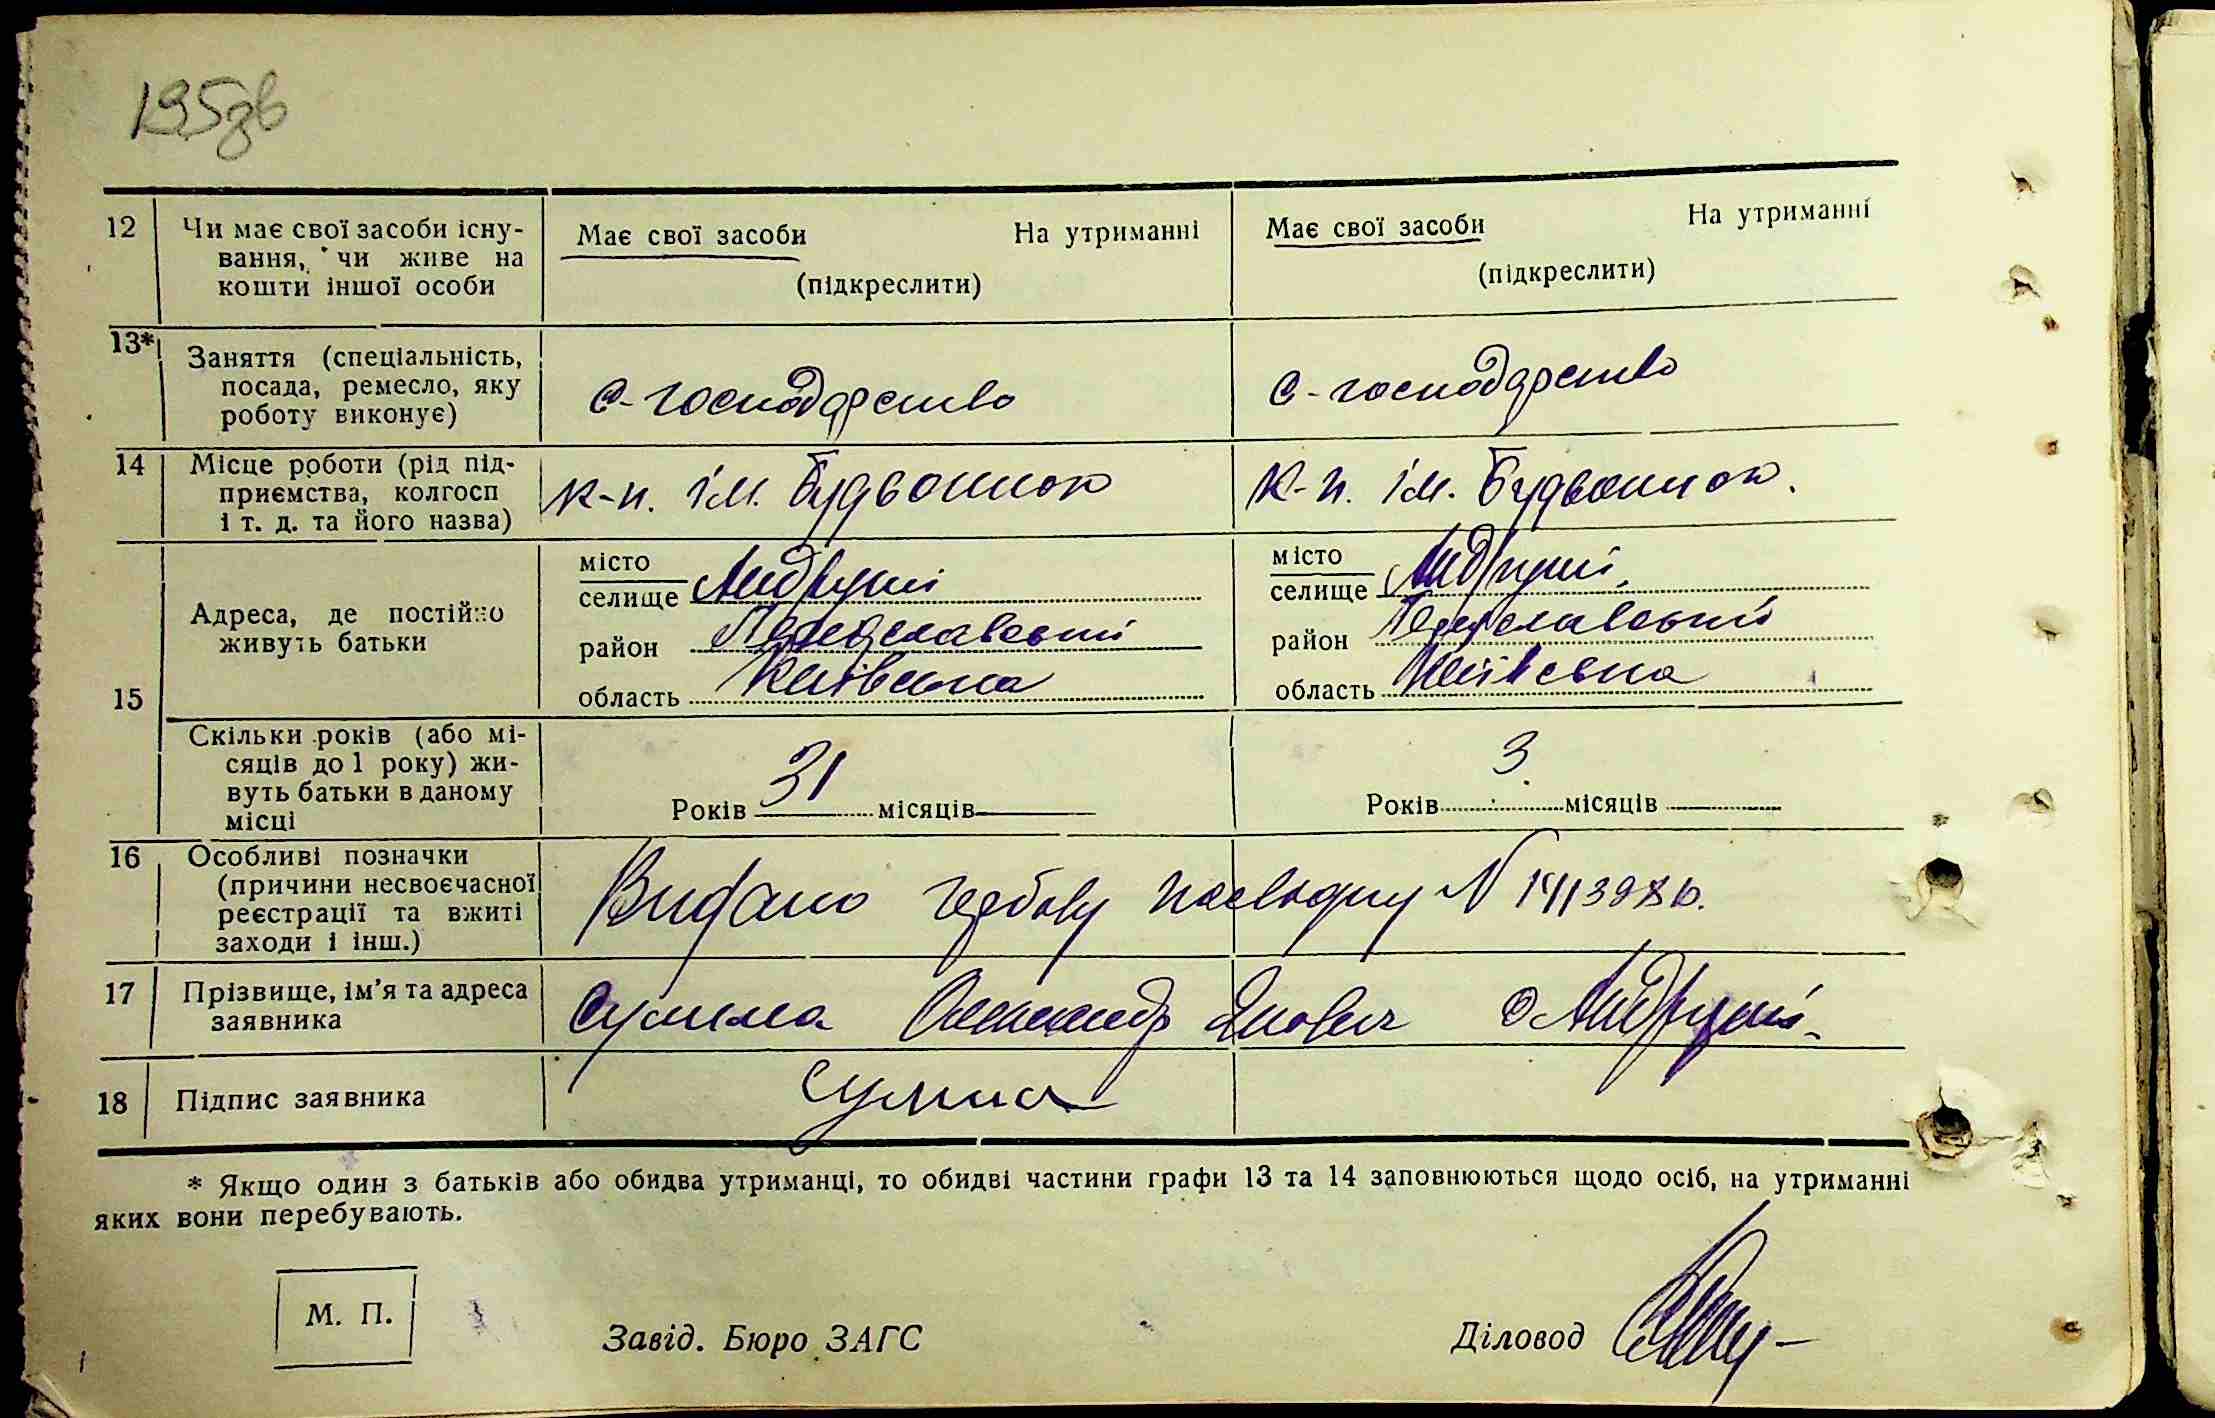 195зв
12 Чи має свої засоби існу-
вання, чи живе на
кошти іншої особи
Має свої засоби На утриманні
(підкреслити)
Має свої засоби На утриманні
(підкреслити)
13* Заняття (спеціальність,
посада, ремесло, яку
роботу виконує)
с-господарство
с-господарство
14 Місце роботи (рід під-
приємства, колгосп
і т. д. та його назва)
к-п. ім. Будьонного
к-п. ім. Будьонного.
15
Адреса, де постійно
живуть батьки
місто
селище Андруші
район Переяславський
область Київська
місто
селище Андруші
район Переяславський
область Київська
Скільки років (або мі-
сяців до 1 року) жи-
вуть батьки в даному
місці
Років 31 місяців
Років 3 місяців
16 Особливі позначки
(причини несвоєчасної
реєстрації та вжиті
заходи і інш.)
Видано гербову посвідку N
17 Прізвище, ім'я та адреса
заявника
Сулима Олександр Якович с Андруші
18 Підпис заявника
* Якщо один з батьків або обидва утриманці, то обидві частини графи 13 та 14 заповнюються щодо осіб, на утриманні
яких вони перебувають.
М. П.
Завід. Бюро ЗАГС
Діловод